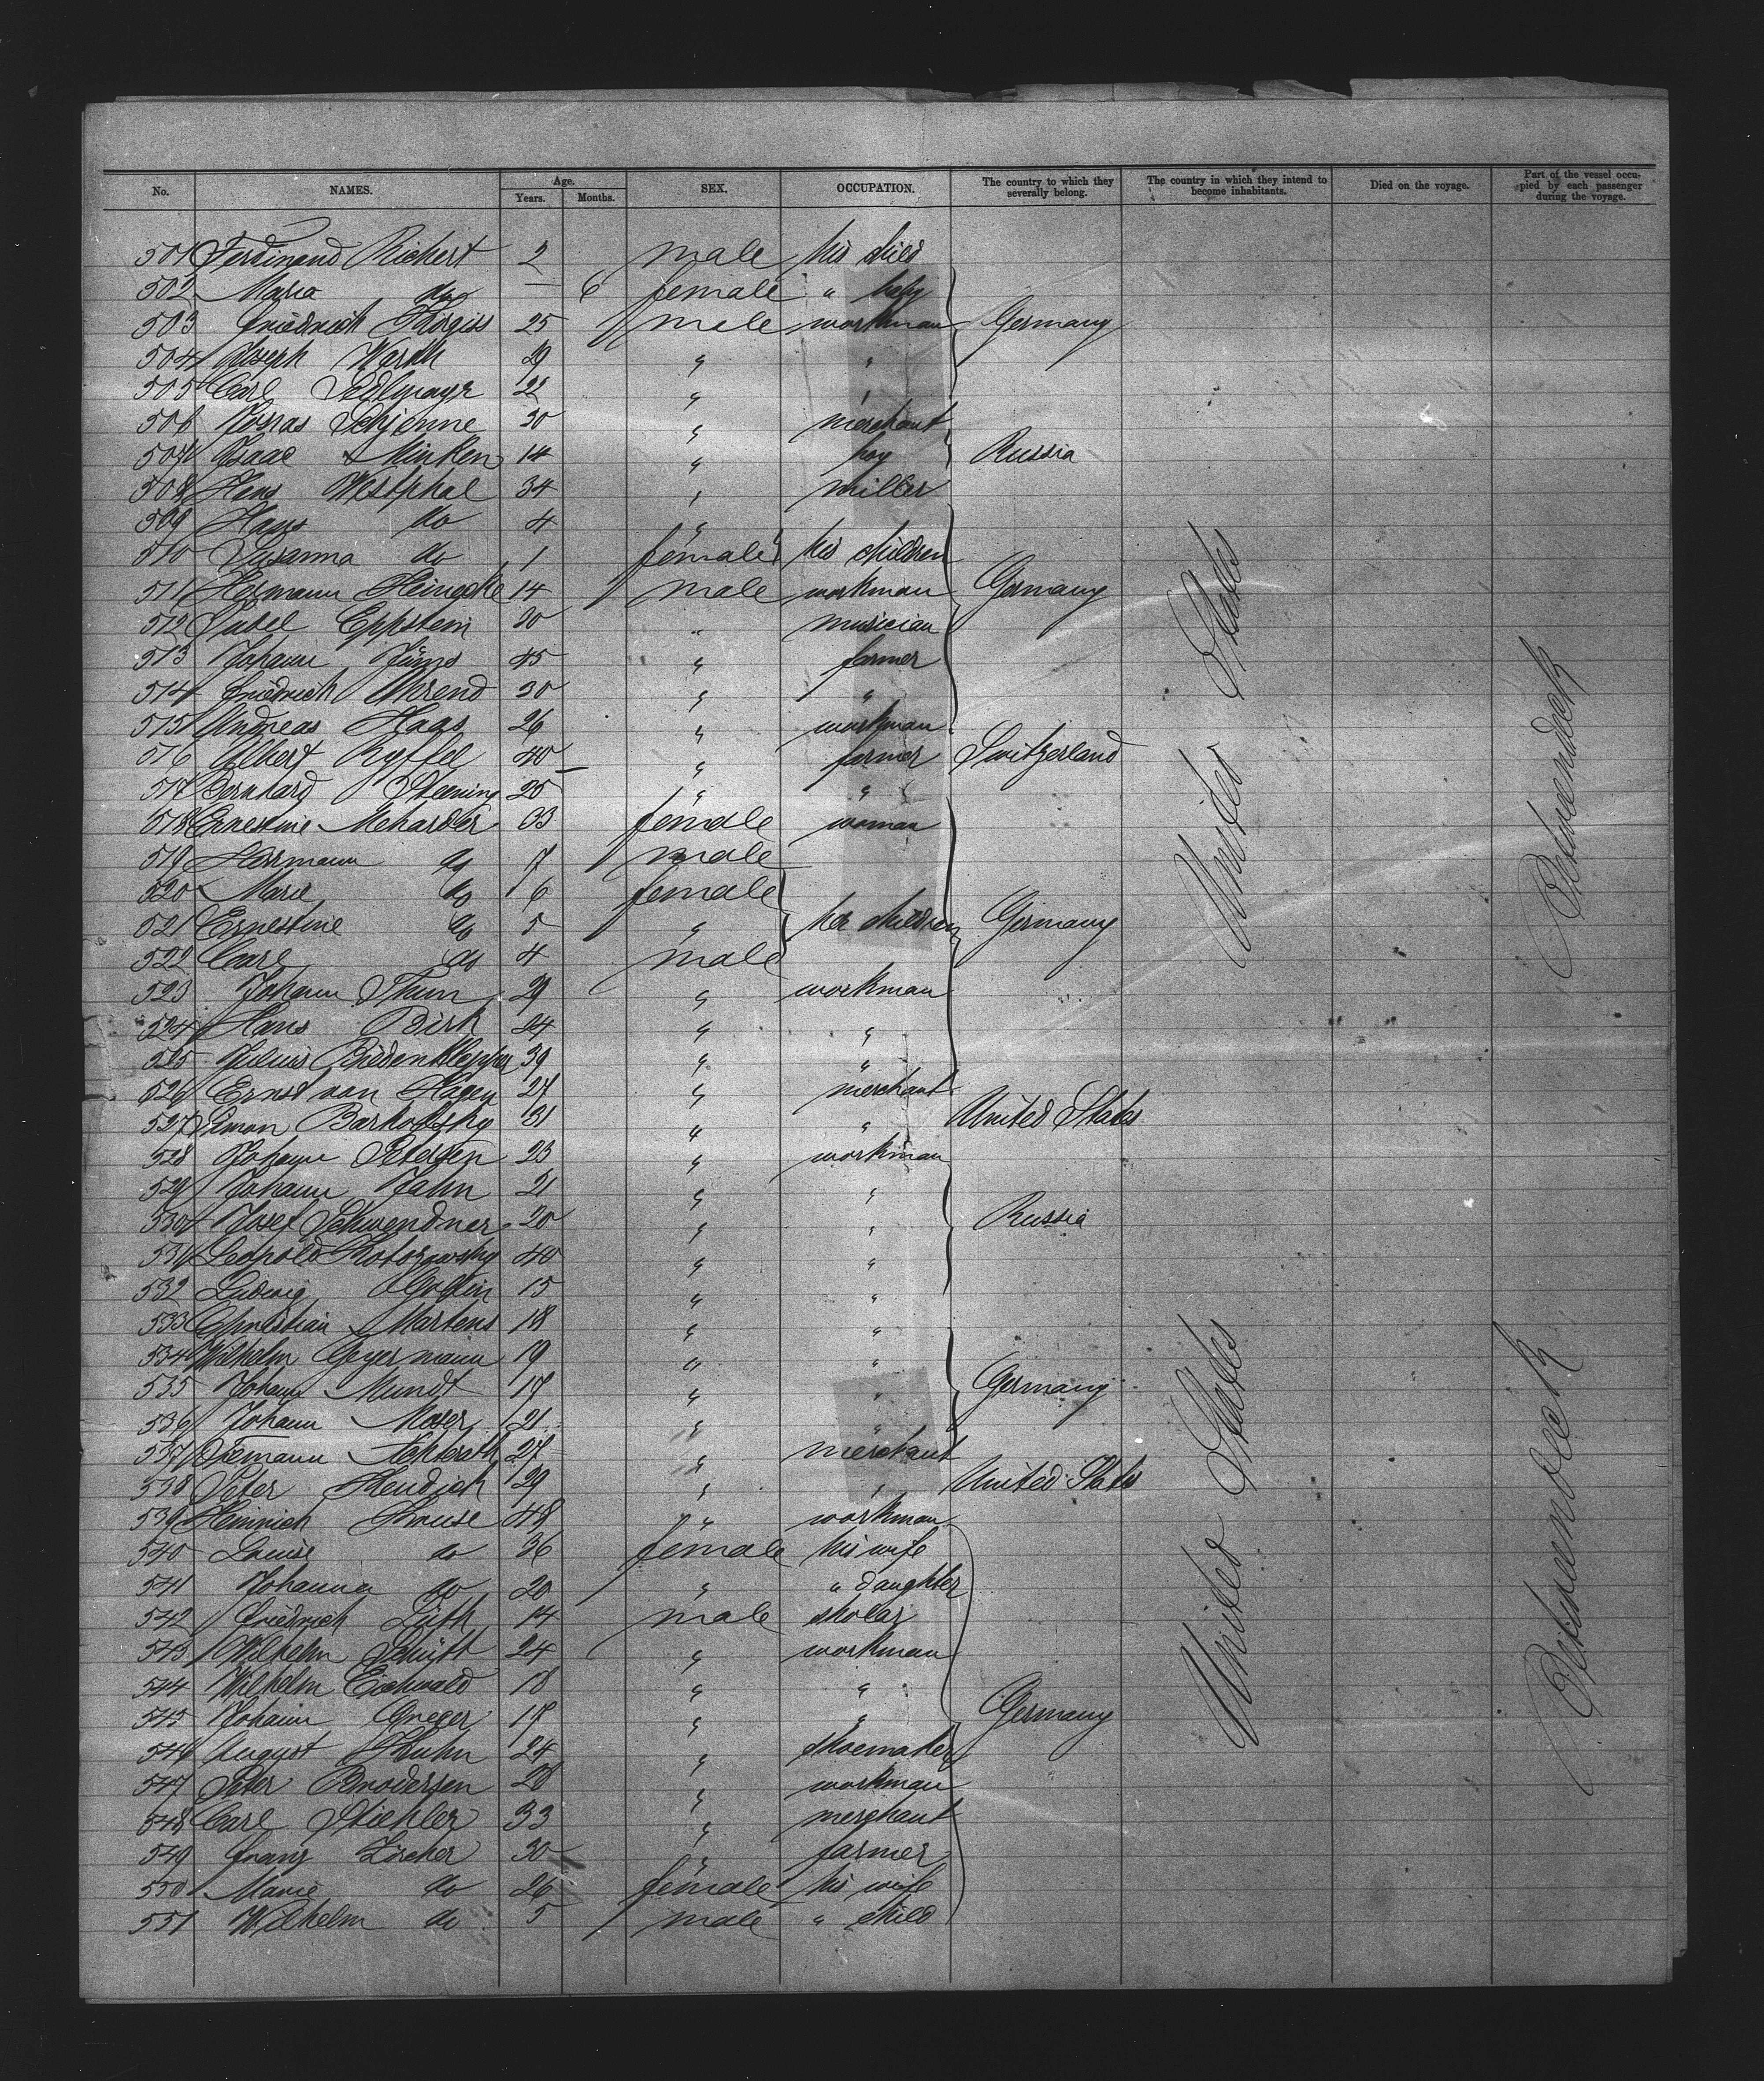 No. NAMES. Age. Years. Months. SEX. OCCUPATION. The country to which they severally belong. The country in which they intend to become inhabitants. Died on the voyage. Part of the vessel occupied by each passenger during the voyage.
501 Ferdinand Richert 2 male his child
502 Maria do — 6 female " baby
503 Friedrich 25 male workman Germany
504 Joseph Werth 29 " "
505 Carl Sedlmayr 22 " "
506 30 " merchant
507 Isaac Minken 14 " boy Russia
508 Hans Westphal 34 " miller
509 Hans do 4 "
510 Susanna do 1 female his children
511 Hermann Heinecke 14 male workman Germany
512 Eppstein 30 " musician
513 Johann Jürns 45 " farmer
514 Friedrich Ahrend 30 " "
515 Andreas Haas 26 " workman
516 Albert Ryffel 40 " farmer Switzerland
517 Bernhard 25 " "
518 Ernestine Meharder 33 female woman
519 Hermann do 7 male
520 Marie do 6 female
521 Ernestine do 5 " her children Germany
522 Carl do 4 male
523 Johann Thun 29 " workman
524 Hans Birk 24 " "
525 Julius Biedenklepper 39 " "
526 Ernst von Hagen 27 " merchant
527 Simon Barkofsky 31 " " United States
528 Johann Petersen 23 " workman
529 Johann Jahn 21 " "
530 Josef Schwendner 20 " " Russia
531 Leopold Kotozowsky 40 " "
532 Ludwig 15 " "
533 Christian Martens 18 " "
534 Wilhelm Geyermann 19 " "
535 Johann Mundt 17 " " Germany
536 Johann Moser 21 " "
537 27 " merchant
538 Peter 29 " " United States
539 Heinrich Kruse 48 " workman
540 Louise do 36 female his wife
541 Johanna do 20 " " daughter
542 Friedrich Lüth 14 male skolar
543 Wilhelm Schütt 24 " workman
544 Wilhelm Eichwald 18 " "
545 Johann Greger 17 " " Germany
546 August Kuhn 24 " shoemaker
547 Peter Brodersen 28 " workman
548 Carl Stiehler 33 " merchant
549 Franz Lischer 30 " farmer
550 Marie do 26 female his wife
551 Wilhelm do 5 male " child
United States
United States
Betweendeck
Betweendeck